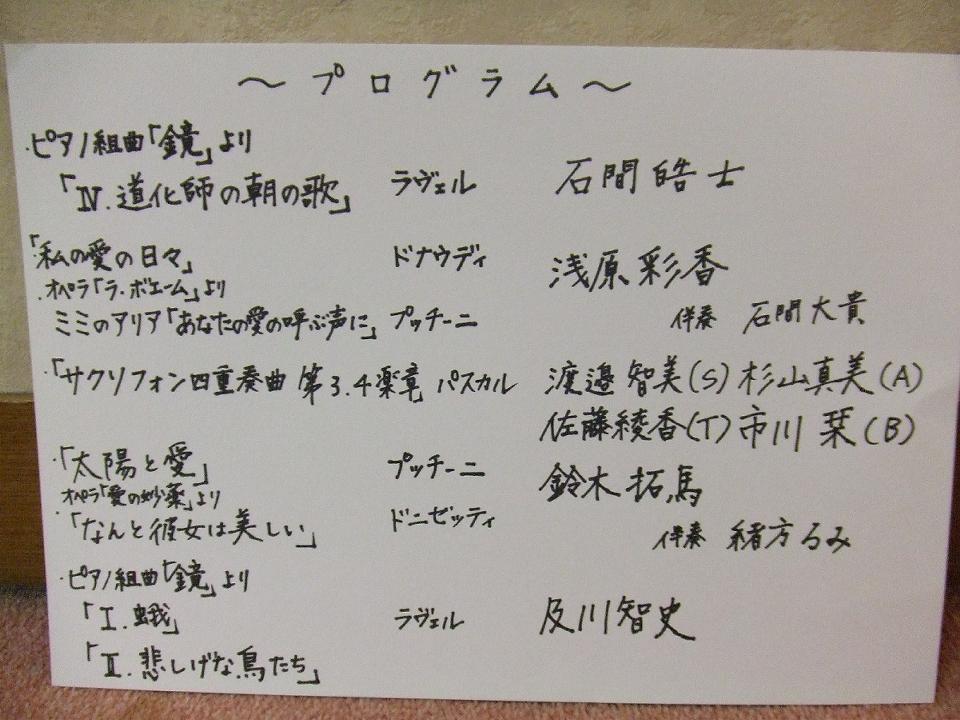 ～プログラム～
・ピアノ組曲「鏡」より
「Ⅳ.道化師の朝の歌」 ラヴェル 石間皓士
・「私の愛の日々」 ドナウディ 浅原彩香
・オペラ「ラ・ボエーム」より
ミミのアリア「あなたの愛の呼ぶ声に」 プッチーニ 伴奏 石間大貴
・「サクリフォン四重奏曲 第3.4楽章 パスカル 渡邉智美(S) 杉山真美(A)
佐藤綾香(T) 市川栞(B)
・「太陽と愛」 プッチーニ 鈴木拓馬
・オペラ「愛の妙薬」より
「なんと彼女は美しい」 ドニゼッティ 伴奏 緒方るみ
・ピアノ組曲「鏡」より
「Ⅰ.蛾」 ラヴェル 及川智史
「Ⅱ.悲しげな鳥たち」